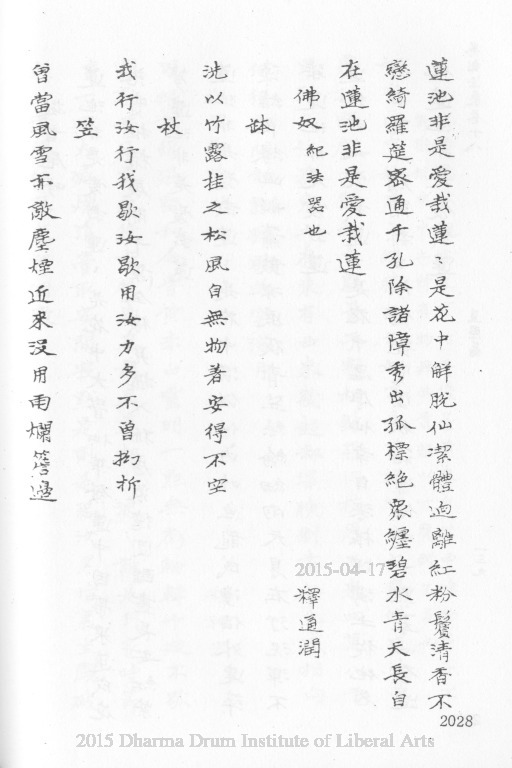 蓮池非是愛栽蓮〻是花中解脫仙潔體逈離紅粉鬘清香不
戀綺羅筵密通千孔除諸障秀出孤標絕衆纏碧水青天長自
在蓮池非是愛栽蓮
佛奴紀法器也 釋通潤
鉢
洗以竹露挂之松風自無物著安得不空
杖
我行汝行我歇汝歇用汝力多不曾拗折
笠
曾當風雪亦敵塵煙近來沒用雨爛簷邊
2015-04-17
2028
2015 Dharma Drum Institute of Liberal Arts